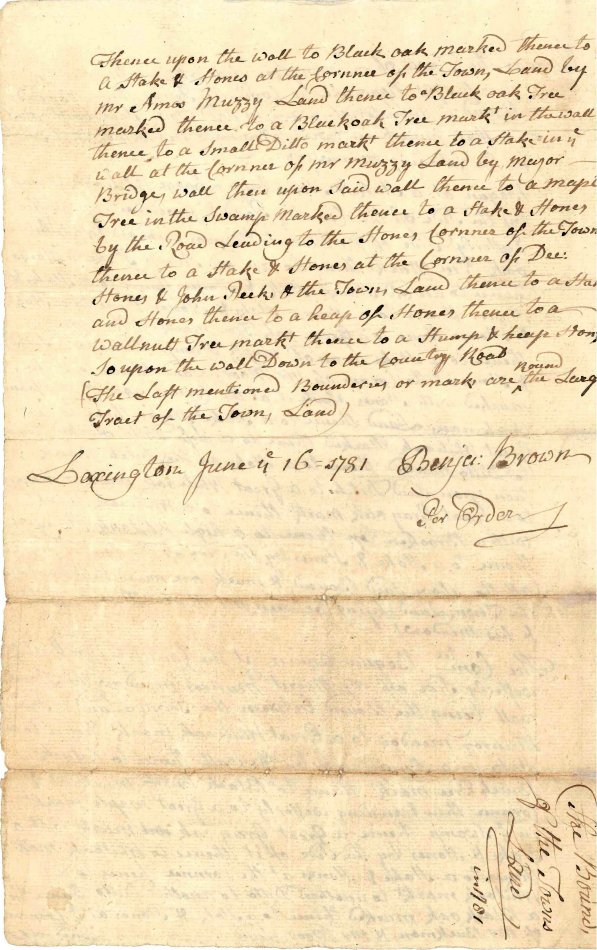 Thence upon the wall to Black oak marked thence to
A Stake & Stones at the Cornner of the Town,s Land by
mr Amos Muzzy Land thence to a Black oak Tree
marked thence to a Black oak Tree markt in the wall
thence to a Small Ditto markt thence to a Stake in ye
wall at the Cornner of mr Muzzy Land by Major
Bridge,s wall then upon Said wall thence to a mapl
Tree in the Swamp Marked thence to a Stake & Stones
by the Road Leading to the Stones Cornner of the Town
thence to a Stake & Stones at the Cornner of Dec:
Stones & John Peck,s & the Town,s Land thence to a Sta
and Stones thence to a heap of Stones thence to a
wallnutt Tree markt thence to a Stump & heep Ston
So upon the wall Down to the Country Road
(The Last mentioned Bounderies or marks are Round the Larg
Tract of the Town,s Land)
Lexington June ye 16=1781 Benja: Brown
Per Order
The Bounds
of the Towns
Land
in 1781